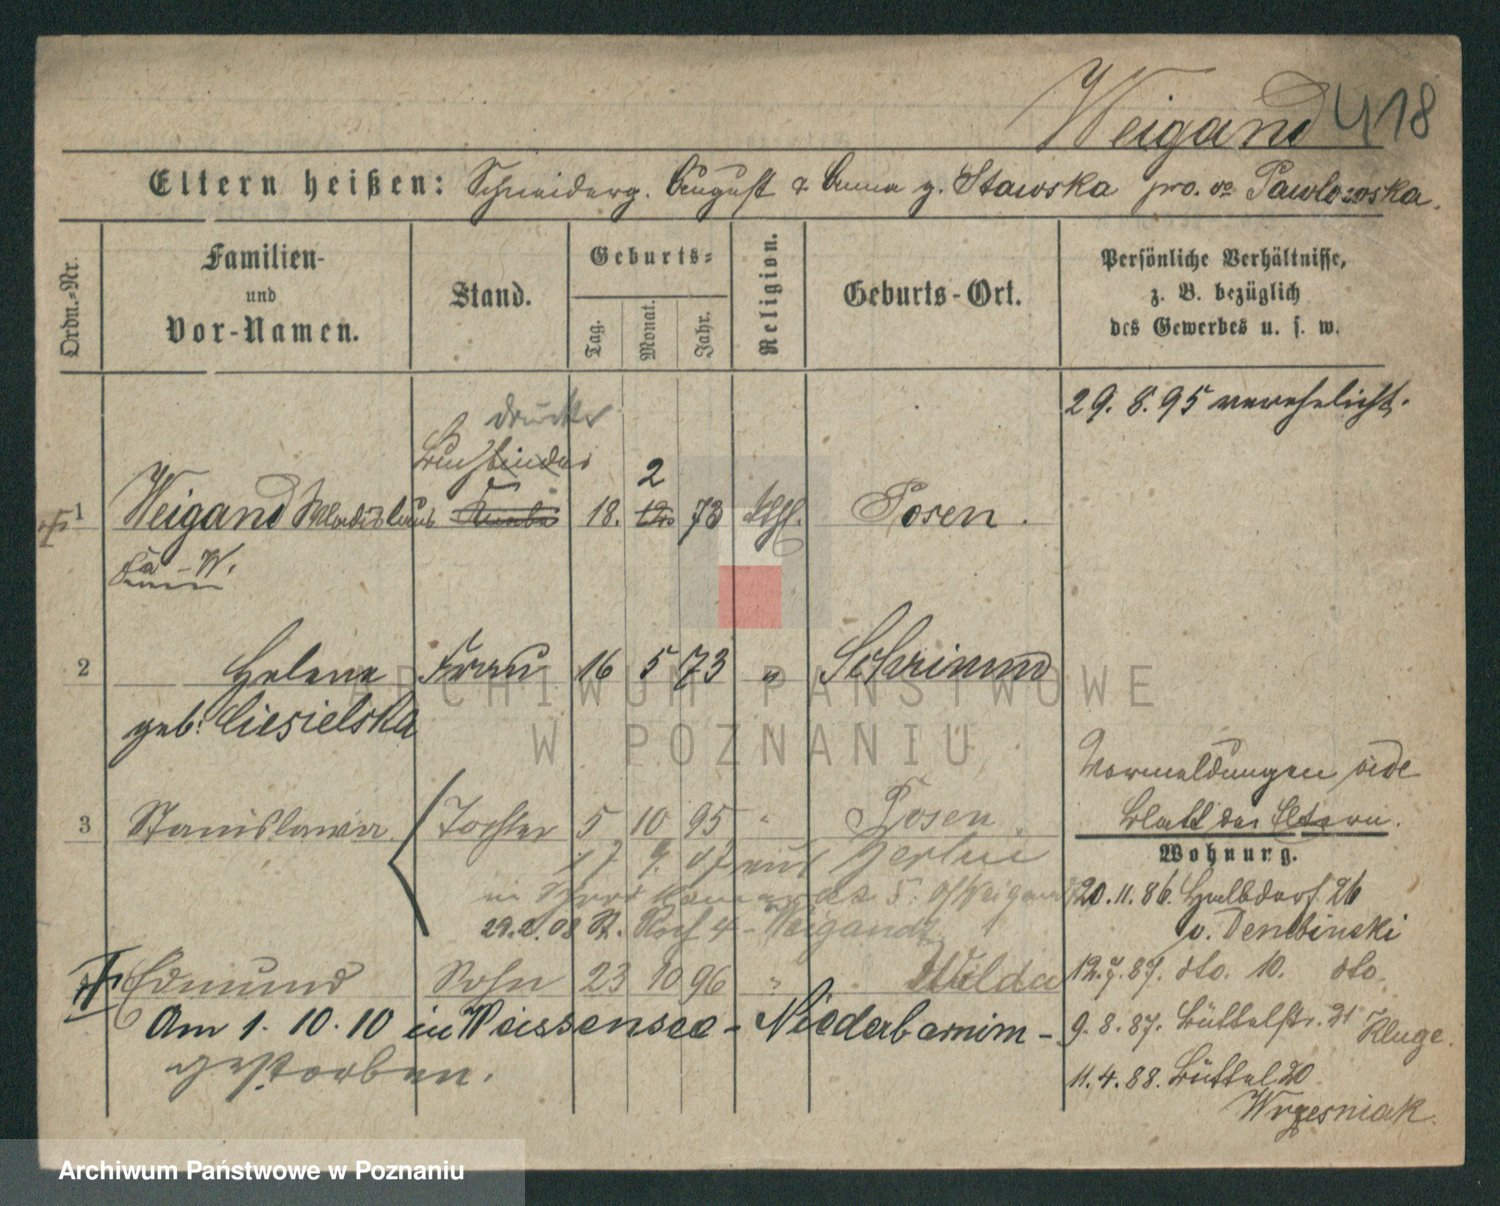 Weigand 418
Eltern heißen: Schneiderg. August & Anna g. Stawska pro. vo Pawlowska.
Ordn.-Nr.
Familien- und Vor-Namen.
Stand.
Geburts-
Tag. Monat. Jahr.
Religion.
Geburts-Ort.
Persönliche Verhältnisse,
z. B. bezüglich
des Gewerbes u. s. w.
29. 8. 95 verehelicht.
drucker
Buchbinder
2
1 Weigand Wladislaus 18. 73 kth. Posen.
2 Helene Frau 16 5 73 " Schrimm
geb. Ciesielska
Vormeldungen vide
Blatt der Eltern.
3 Stanislawa Tochter 5 10 95 " Posen
Wohnung.
17 9. 07 aus Berlin
5. Weigand
29. 2. 08 4 - Weigandt
20. 11. 86. Halbdorf 26
v. Dembinski
Edmund Sohn 23 10 96 " Wilda
12. 7. 87. dto. 10. dto.
Am 1. 10. 10 in Weissensee - Niederbarnim -
gestorben.
9. 8. 87. Büttelstr. 21 Kluge.
11. 4. 88. Büttel 20
Wrzesniak
ARCHIWUM PAŃSTWOWE
W POZNANIU
Archiwum Państwowe w Poznaniu